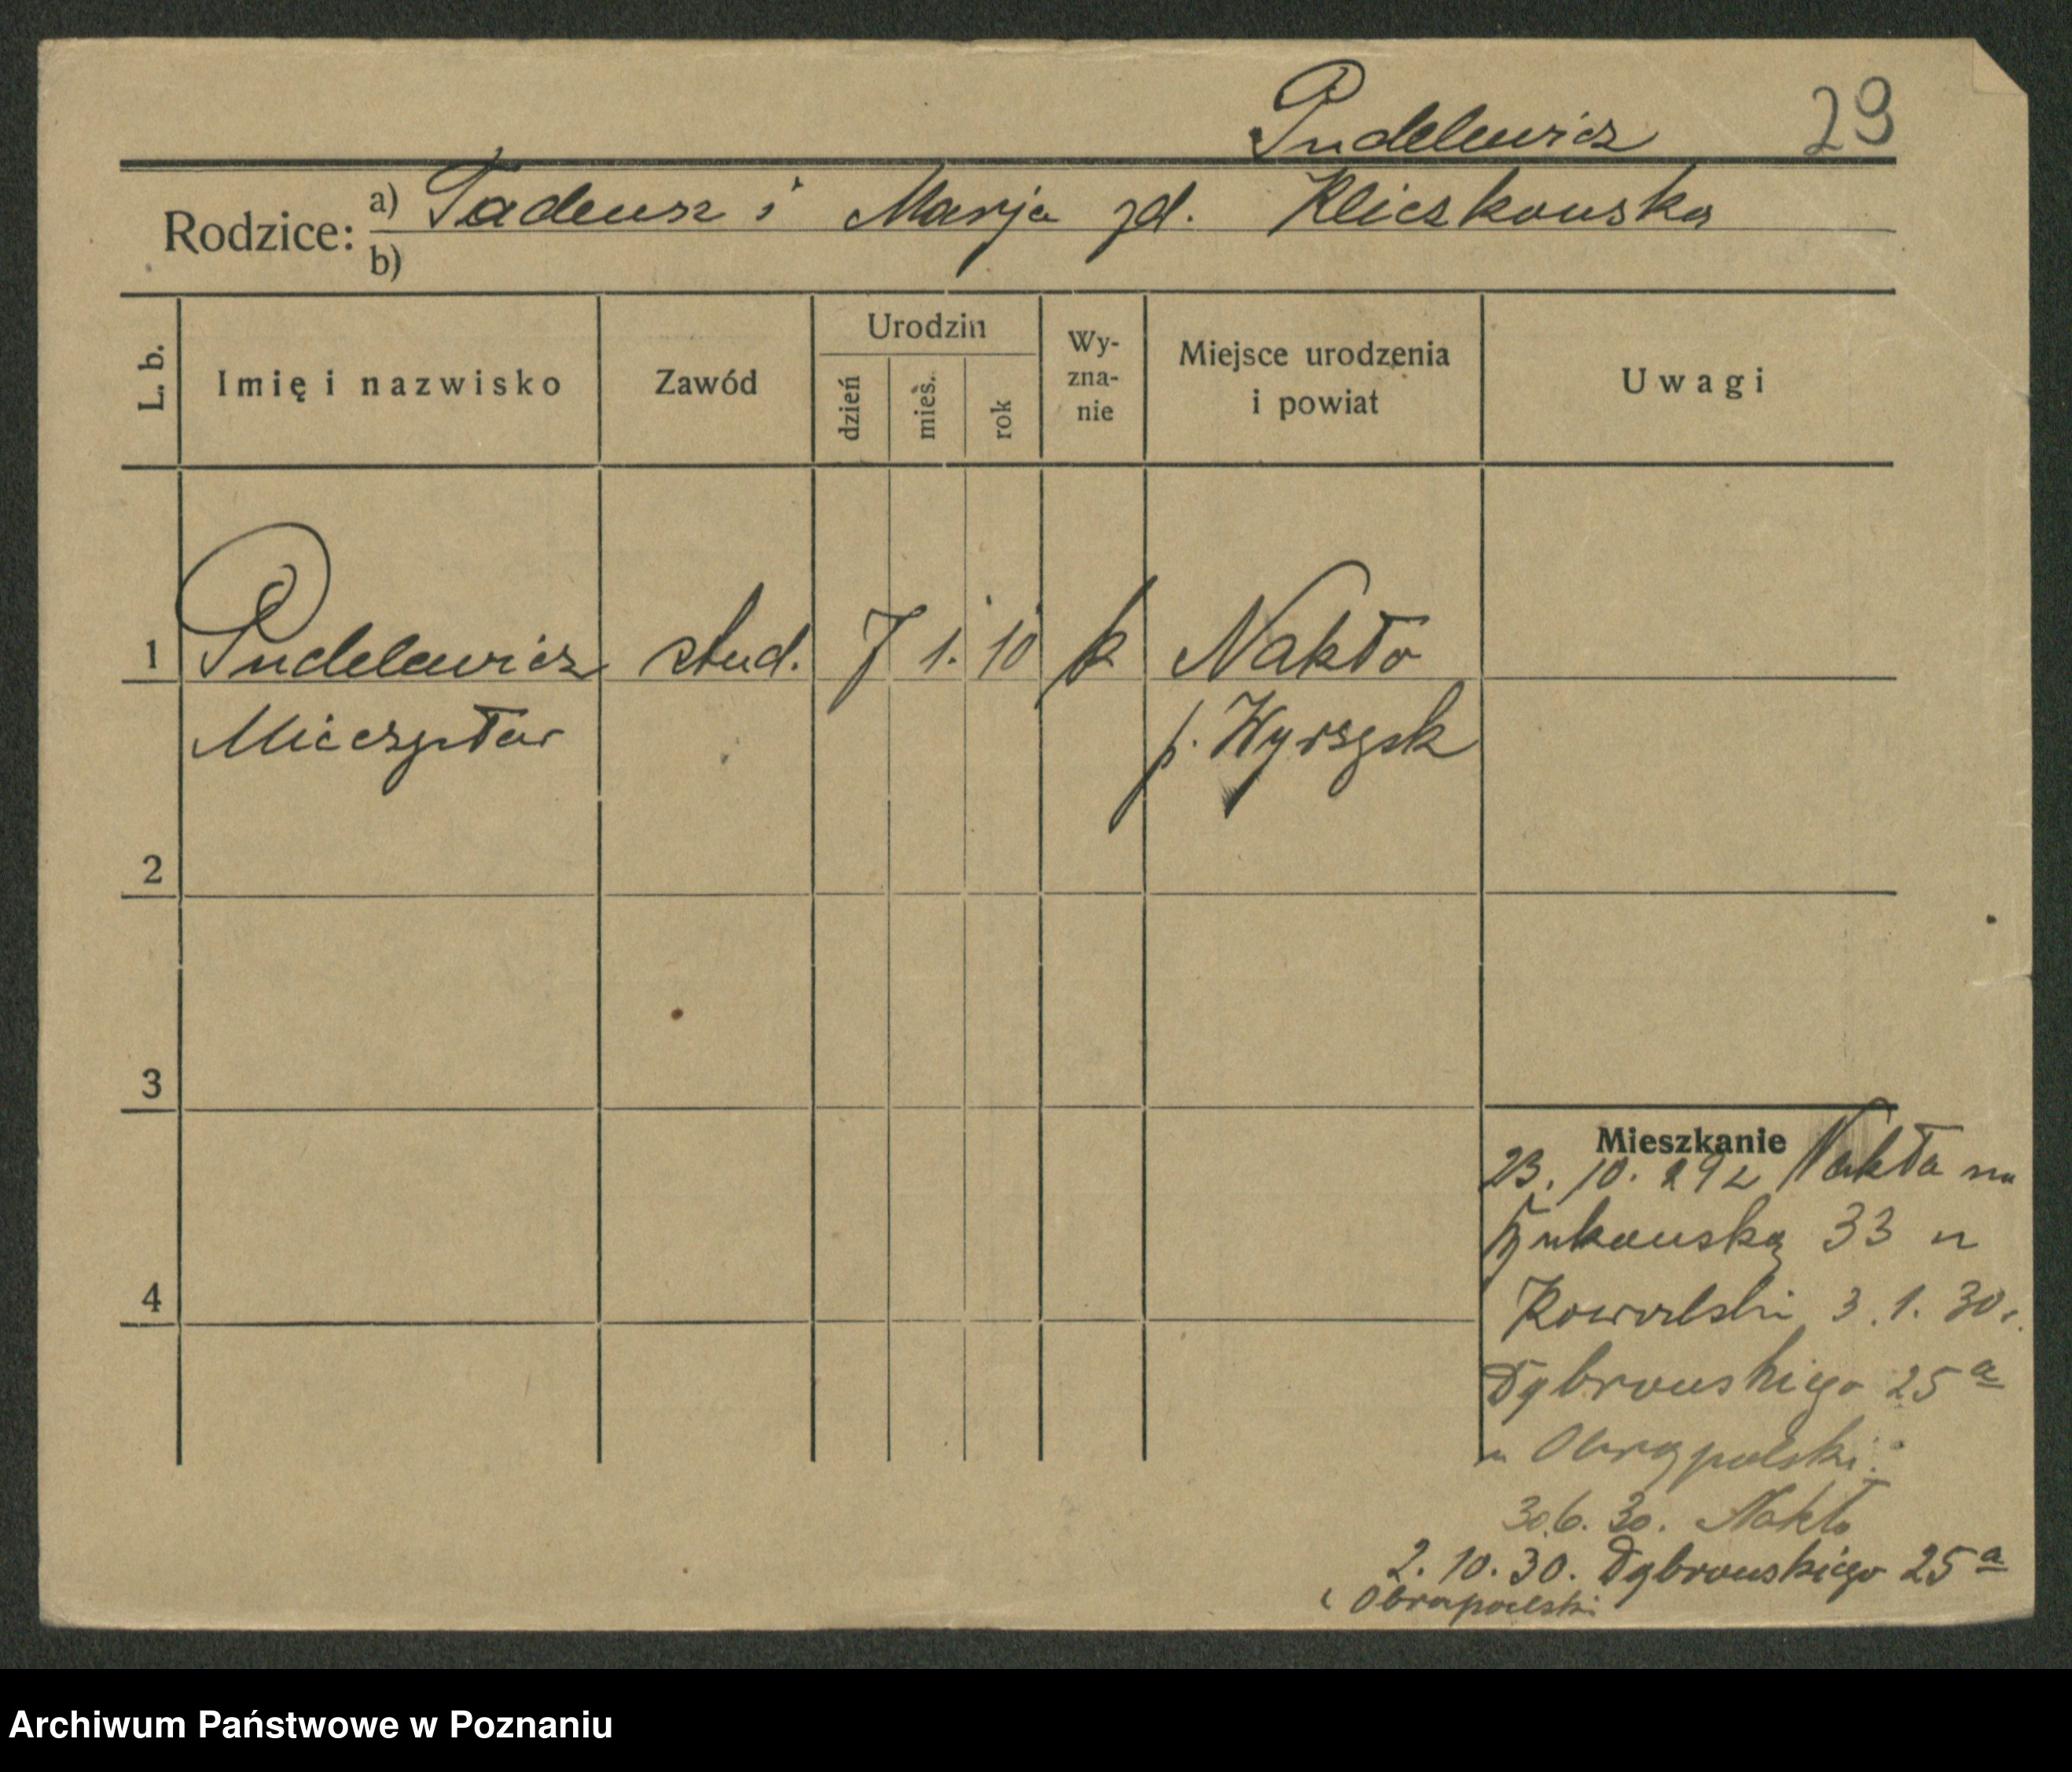 Pudelewicz 29
Rodzice: a) Tadeusz i Marja zd. Kliczkowska
b)
L. b.
Imię i nazwisko
Zawód
Urodzin
dzień
mieś.
rok
Wy-
zna-
nie
Miejsce urodzenia
i powiat
Uwagi
1 Pudelewicz stud. 7 1. 10 k Nakło
Mieczysław p. Wyrzysk
2
3
4
Mieszkanie
23. 10. 292 Nakła na
Bukowską 33 u
Kowalski 3.1.30r.
Dąbrowskiego 25a
u Obrąpalski.
30.6.30. Nakło
2.10.30. Dąbrowskiego 25a
Obrapalski
Archiwum Państwowe w Poznaniu